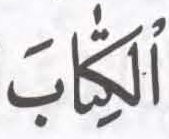 ٱلْكِتَٰابَ